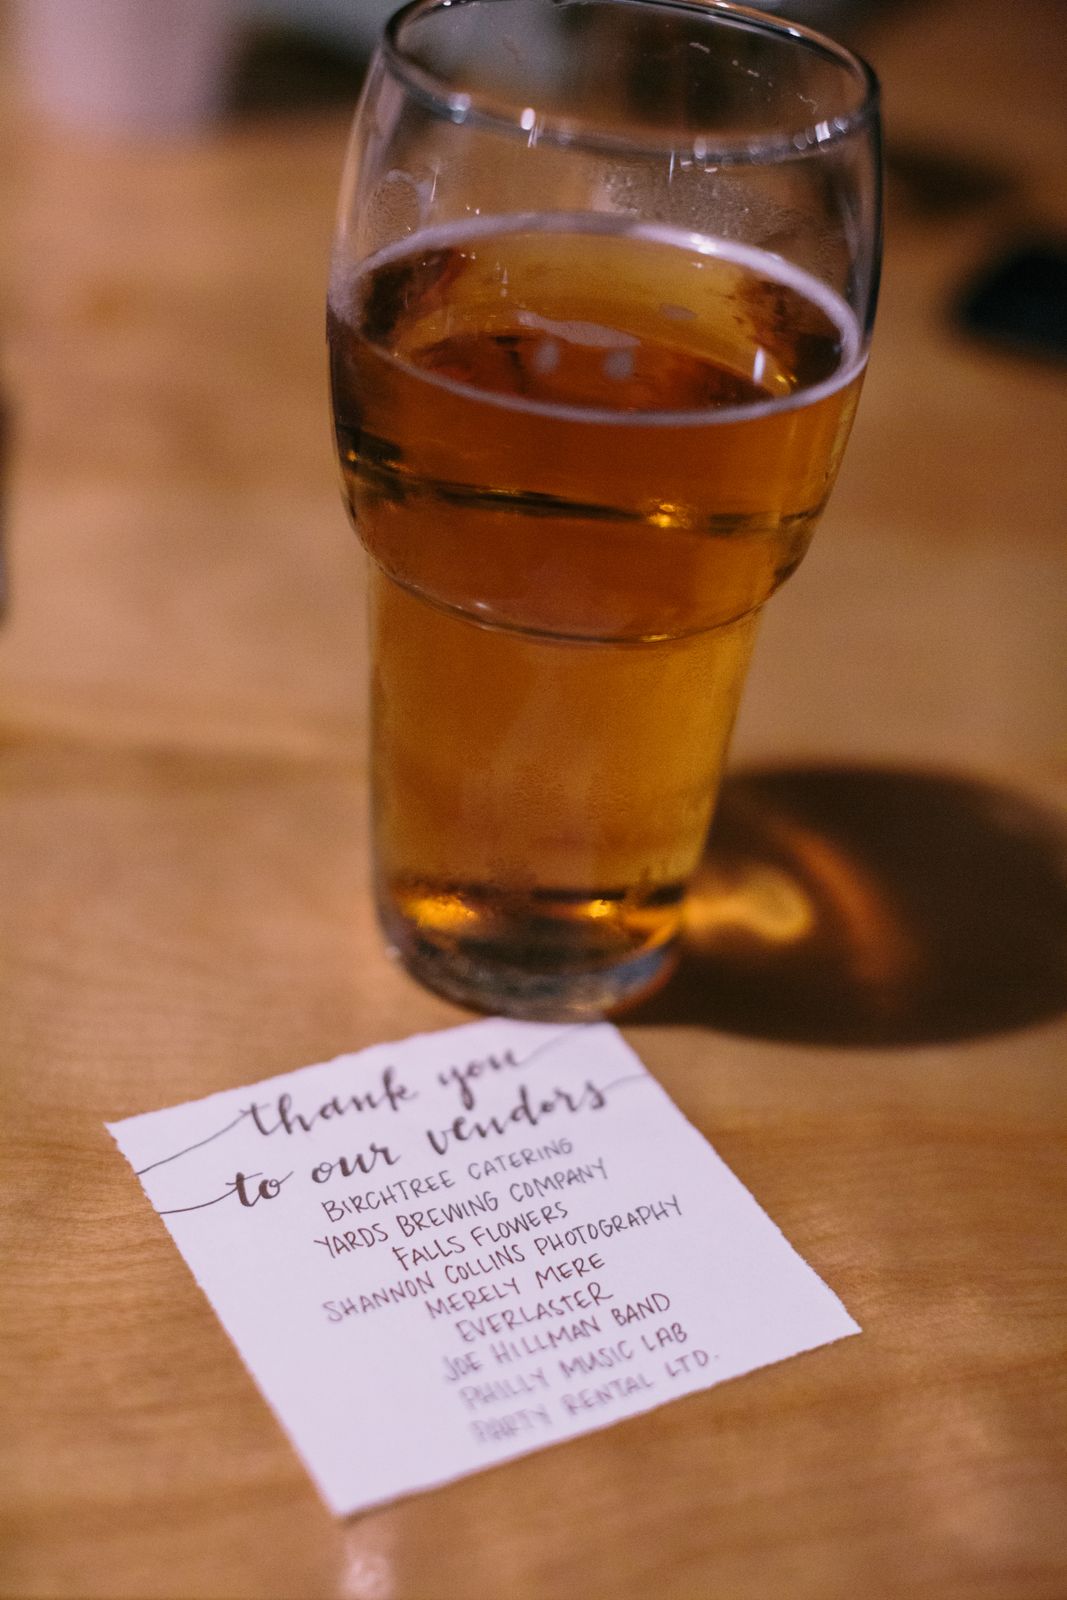 thank you
to our vendors
BIRCHTREE CATERING
YARDS BREWING COMPANY
FALLS FLOWERS
SHANNON COLLINS PHOTOGRAPHY
MERELY MERE
EVERLASTER
JOE HILLMAN BAND
PHILLY MUSIC LAB
PARTY RENTAL LTD.